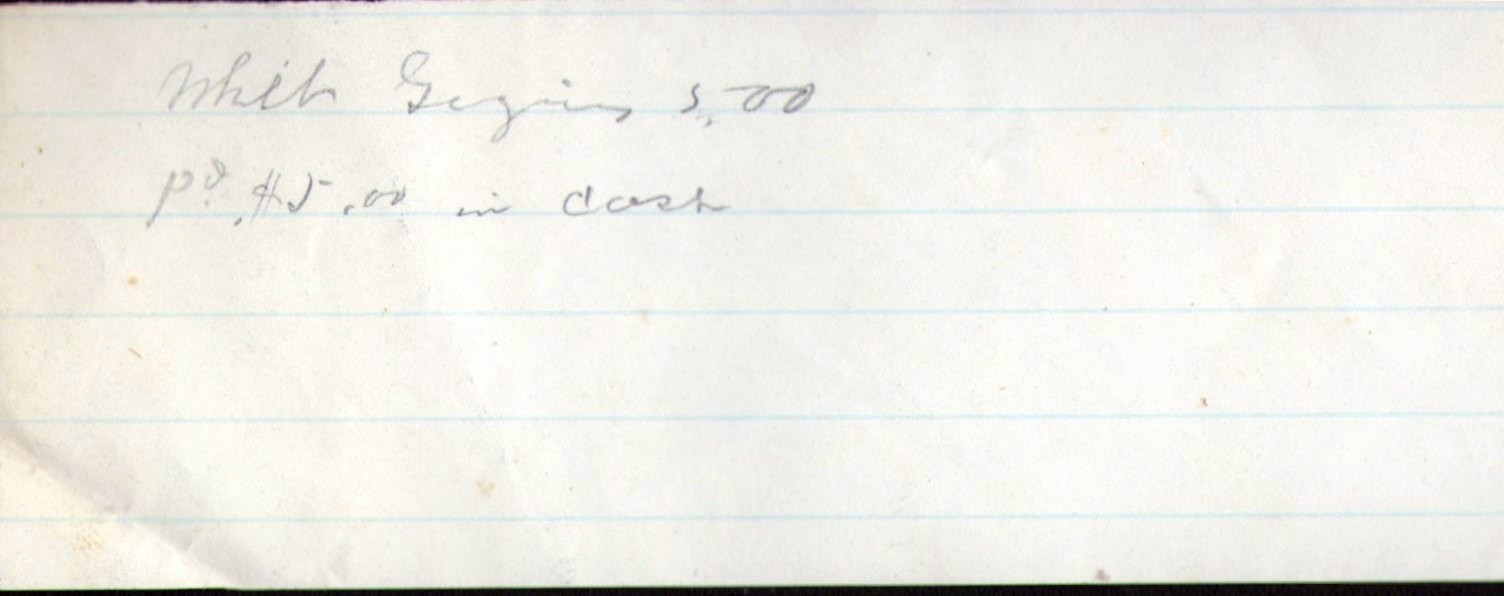 Whit 5.00
pd. $5.00 in cash